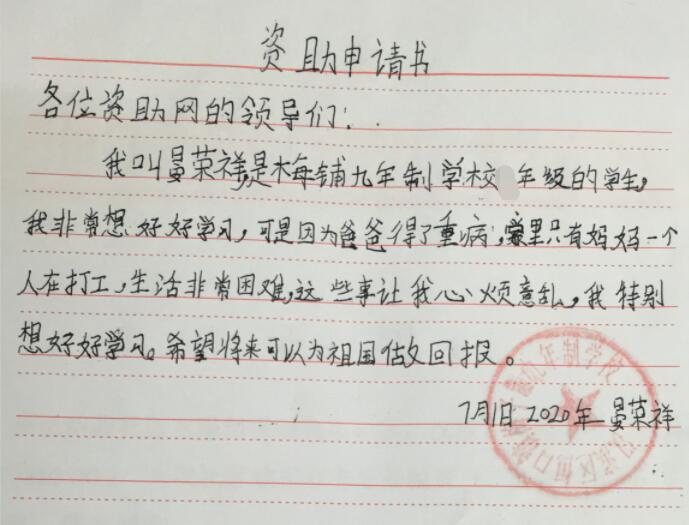 资助申请书
各位资助网的领导们:
我叫晏荣祥,是梅铺九年制学校 年级的学生,
我非常想好好学习,可是因为爸爸得了重病,家里只有妈妈一个
人在打工,生活非常困难,这些事让我心烦意乱,我特别
想好好学习。希望将来可以为祖国做回报。
7月1日 2020年 晏荣祥
九年制学校